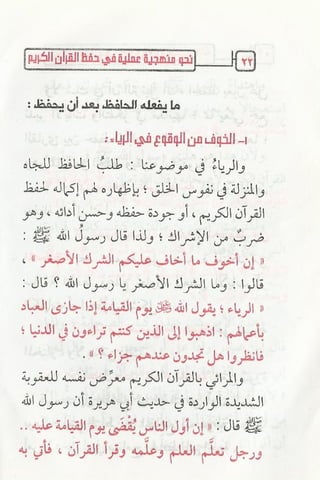 ٢٢
نحو منهجية عملية في حفظ القرآن الكريم
ما يفعله الحافظ بعد أن يحفظ :
١- الخوف من الوقوع في الرياء :
والرياءُ في موضوعنا : طلبُ الحافظ للجاه
والمنزلة في نفوس الخلق ؛ بإظهاره لهم إكماله لحفظ
القرآن الكريم ، أو جودة حفظه وحسن أدائه ، وهو
ضربٌ من الإشراك ؛ ولذا قال رسولُ الله ﷺ :
« إن أخوف ما أخاف عليكم الشرك الأصغر » ،
قالوا : وما الشرك الأصغر يا رسول الله ؟ قال :
« الرياء ؛ يقول الله ﷻ يوم القيامة إذا جازى العباد
بأعمالهم : اذهبوا إلى الذين كنتم تراءون في الدنيا ؛
فانظروا هل تجدون عندهم جزاء ؟ » .
والمرائي بالقرآن الكريم معرِّض نفسه للعقوبة
الشديدة الواردة في حديث أبي هريرة أن رسول الله
ﷺ قال : « إن أول الناس يُقْضَى يوم القيامة عليه ..
ورجل تعلَّم العلم وعلَّمه وقرأ القرآن ، فأتي به